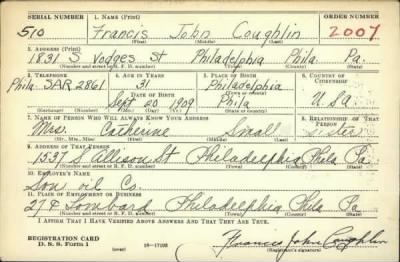 SERIAL NUMBER 1. NAME (Print) ORDER NUMBER
510 Francis John Coughlin 2007
(First) (Middle) (Last)
2. ADDRESS (Print)
1831 S Vodges St Philadelphia Phila. Pa.
(Number and street or R. F. D. number) (Town) (County) (State)
3. TELEPHONE 4. AGE IN YEARS 5. PLACE OF BIRTH 6. COUNTRY OF CITIZENSHIP
Phila. SAR 2861 31 Philadelphia
DATE OF BIRTH (Town or county)
Sept 20 1909 Phila U.Sa
(Exchange) (Number) (Mo.) (Day) (Yr.) (State or country)
7. NAME OF PERSON WHO WILL ALWAYS KNOW YOUR ADDRESS 8. RELATIONSHIP OF THAT PERSON
Mrs. Catherine Small sister
(Mr., Mrs., Miss) (First) (Middle) (Last)
9. ADDRESS OF THAT PERSON
1537 S Allison St Philadelphia Phila Pa
(Number and street or R. F. D. number) (Town) (County) (State)
10. EMPLOYER'S NAME
Son oil Co.
11. PLACE OF EMPLOYMENT OR BUSINESS
27 & Lombard Philadelphia Phila Pa
(Number and street or R. F. D. number) (Town) (County) (State)
I AFFIRM THAT I HAVE VERIFIED ABOVE ANSWERS AND THAT THEY ARE TRUE.
REGISTRATION CARD
D. S. S. Form 1 (over) 16—17105 Francis John Coughlin
(Registrant's signature)